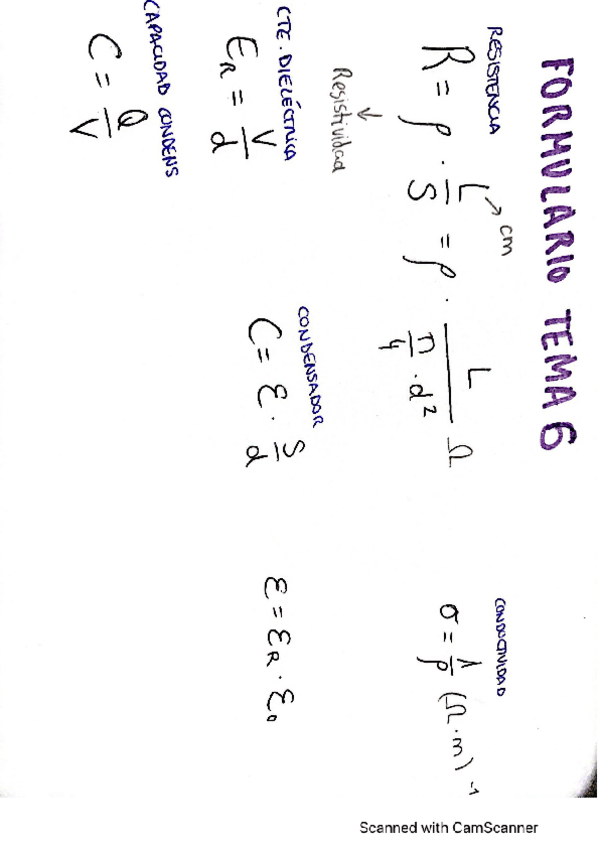 FORMULARIO TEMA 6
RESISTENCIA
R = ρ · L/S = ρ · L/(π/4 · d²) Ω
cm
Resistividad
CONDUCTIVIDAD
σ = 1/ρ (Ω·m)⁻¹
CTE. DIELÉCTRICA
E_R = V/d
CONDENSADOR
C = ε · S/d
ε = ε_R · ε_0
CAPACIDAD CONDENS
C = Q/V
Scanned with CamScanner